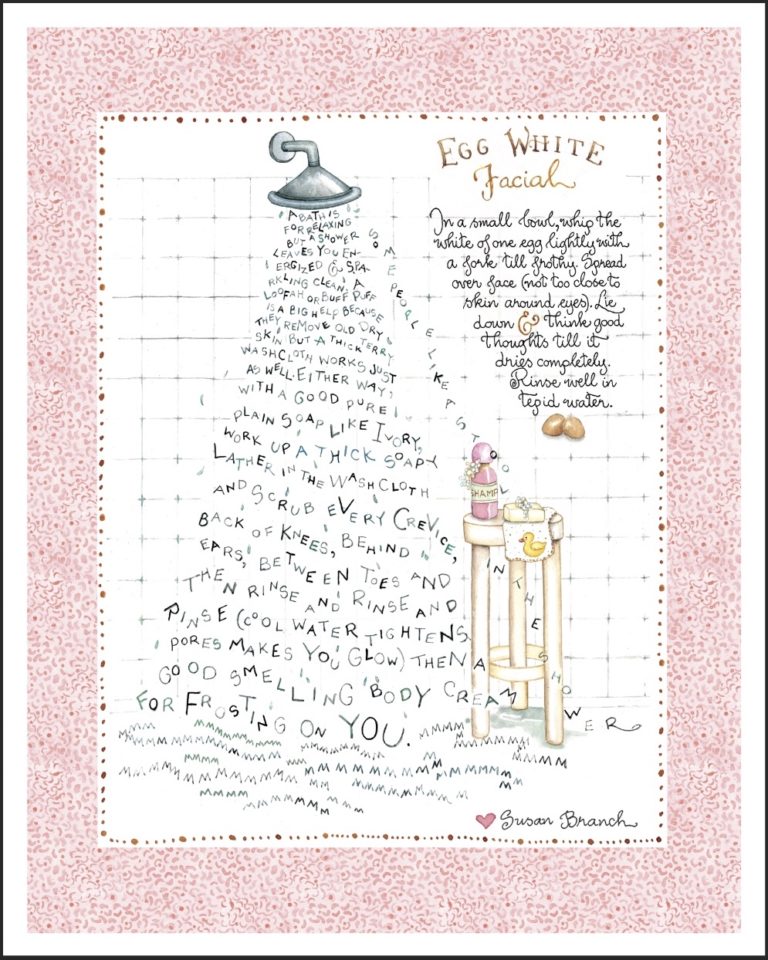 EGG WHITE
Facial
In a small bowl, whip the
white of one egg lightly with
a fork till frothy. Spread
over face (not too close to
skin around eyes). Lie
down & think good
thoughts till it
dries completely.
Rinse well in
tepid water.
A BATH IS
FOR RELAXING
BUT A SHOWER
LEAVES YOU EN-
ERGIZED & SPA-
RKLING CLEAN. A
LOOFAH OR BUFF PUFF
IS A BIG HELP BECAUSE
THEY REMOVE OLD DRY
SKIN BUT A THICK TERRY
WASHCLOTH WORKS JUST
AS WELL. EITHER WAY,
WITH A GOOD PURE
PLAIN SOAP LIKE IVORY,
WORK UP A THICK SOAPY
LATHER IN THE WASHCLOTH
AND SCRUB EVERY CREVICE,
BACK OF KNEES, BEHIND
EARS, BETWEEN TOES AND
THEN RINSE AND RINSE AND
RINSE (COOL WATER TIGHTENS
PORES MAKES YOU GLOW) THEN A
GOOD SMELLING BODY CREAM
FOR FROSTING ON YOU.
SOME PEOPLE LIKE A STOOL IN THE SHOWER
SHAMP
MMMM MMMMMMMMMM MMMM
MMMMMMMM MMMMMMMMM MMMMMMMM
MMMM MMMMMM
MMMMMMMMMMMM MMMMMMMMMMMM MMMMMMM
MMMM MMMMMMMM MMMM
Susan Branch